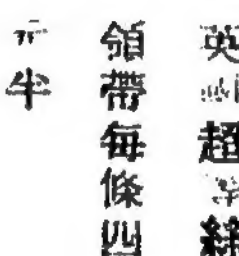 英超絲
領帶每條四
元半